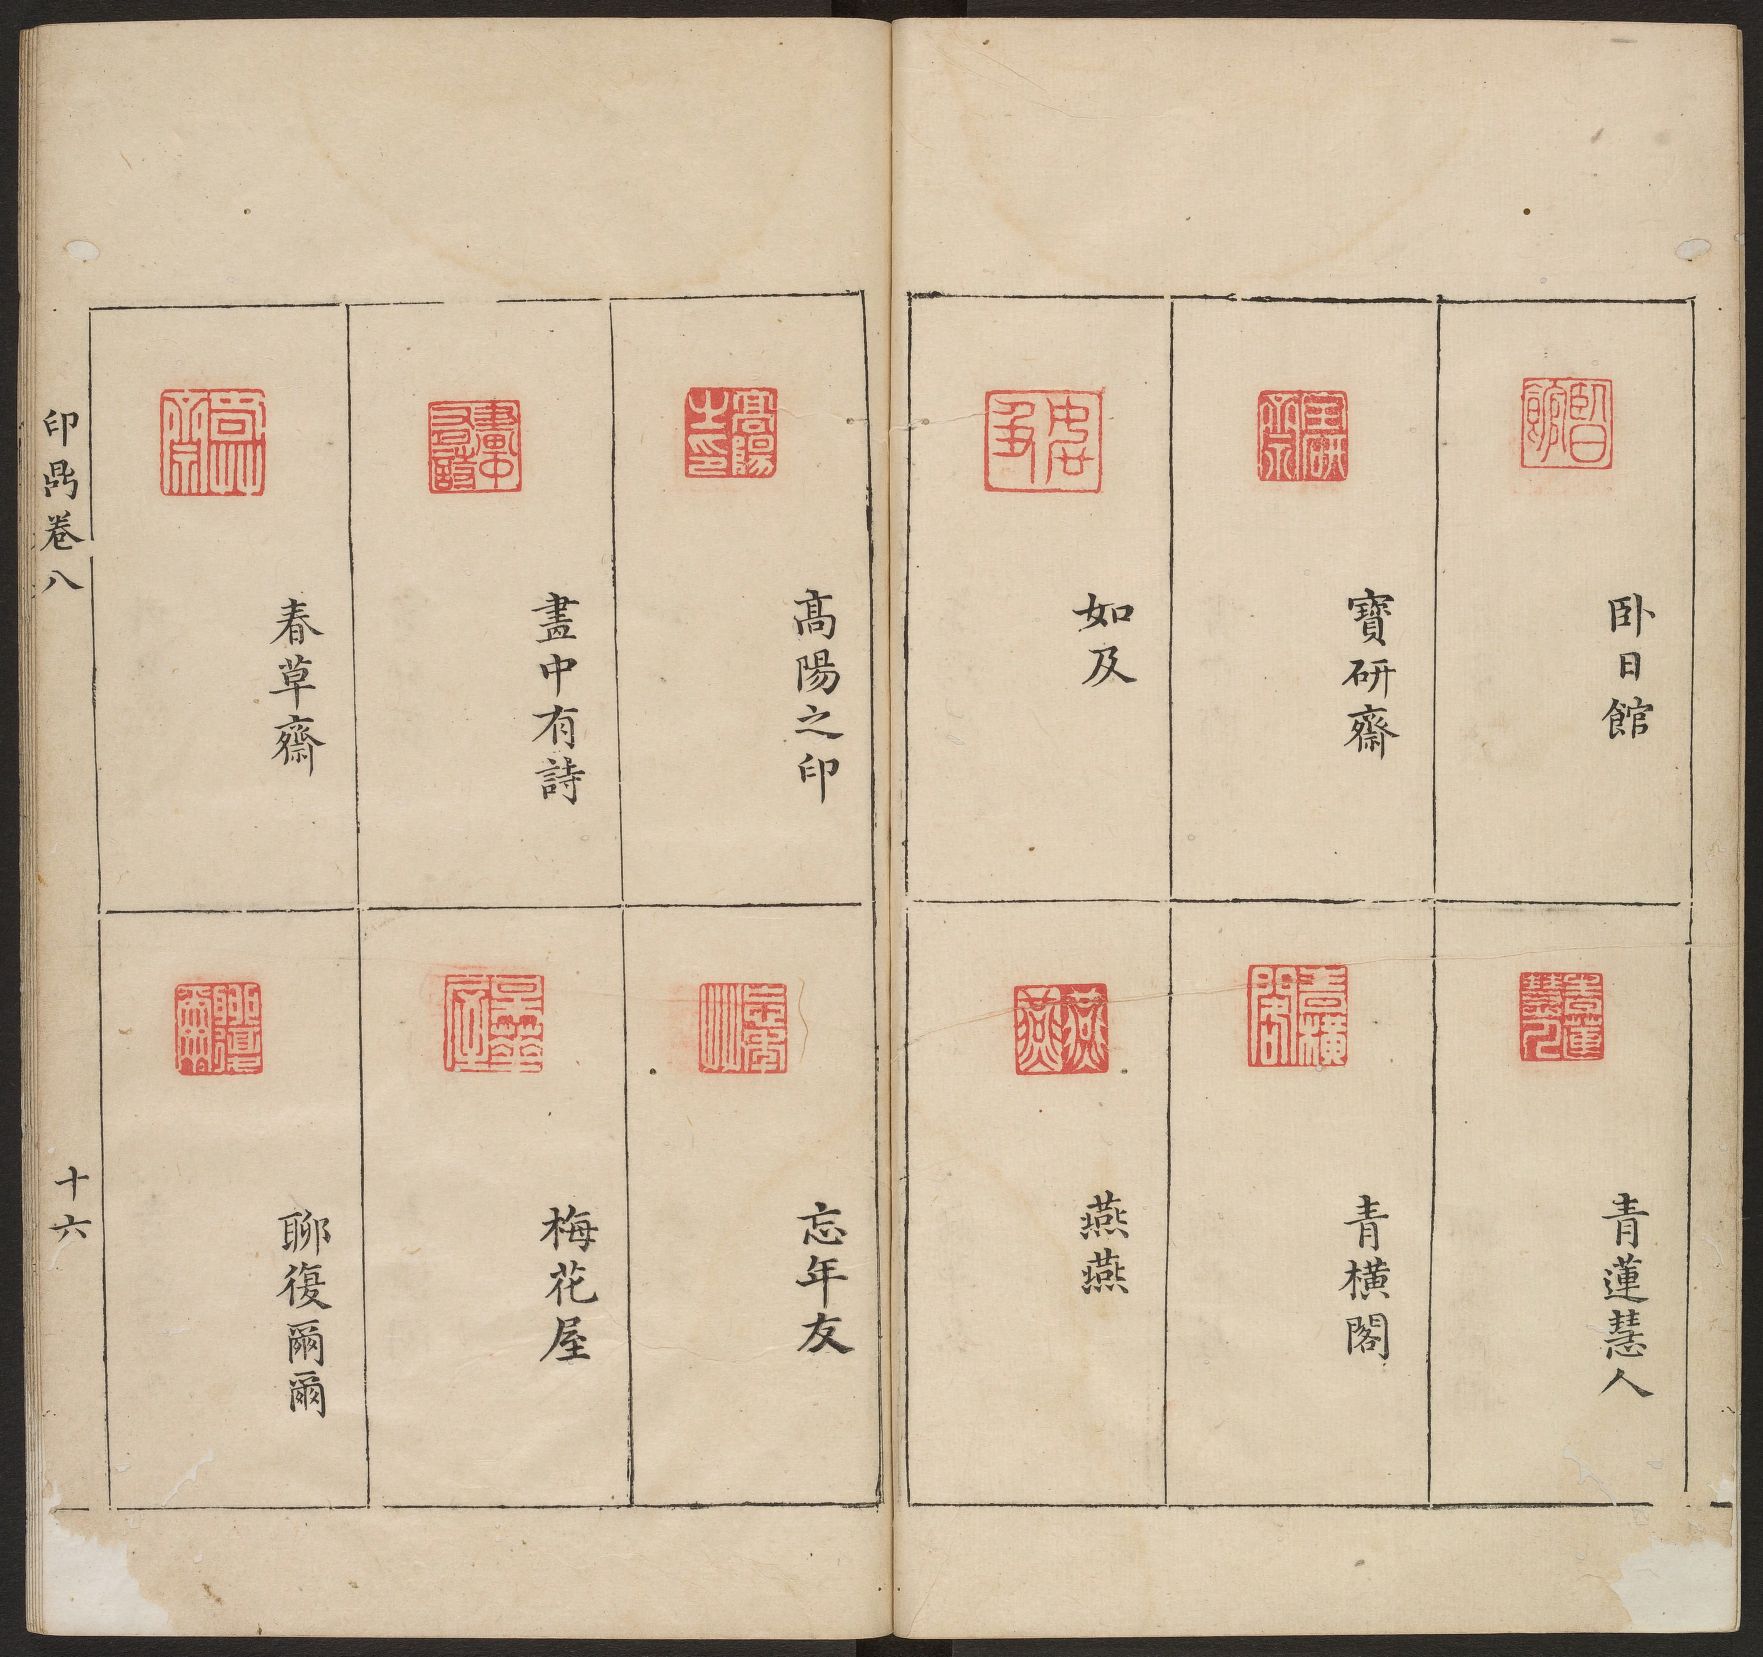 卧日館
寶研齋
如及
青蓮慧人
青橫閣
燕燕
高陽之印
畫中有詩
春草齋
忘年友
梅花屋
聊復爾爾
印鼎卷八
十六